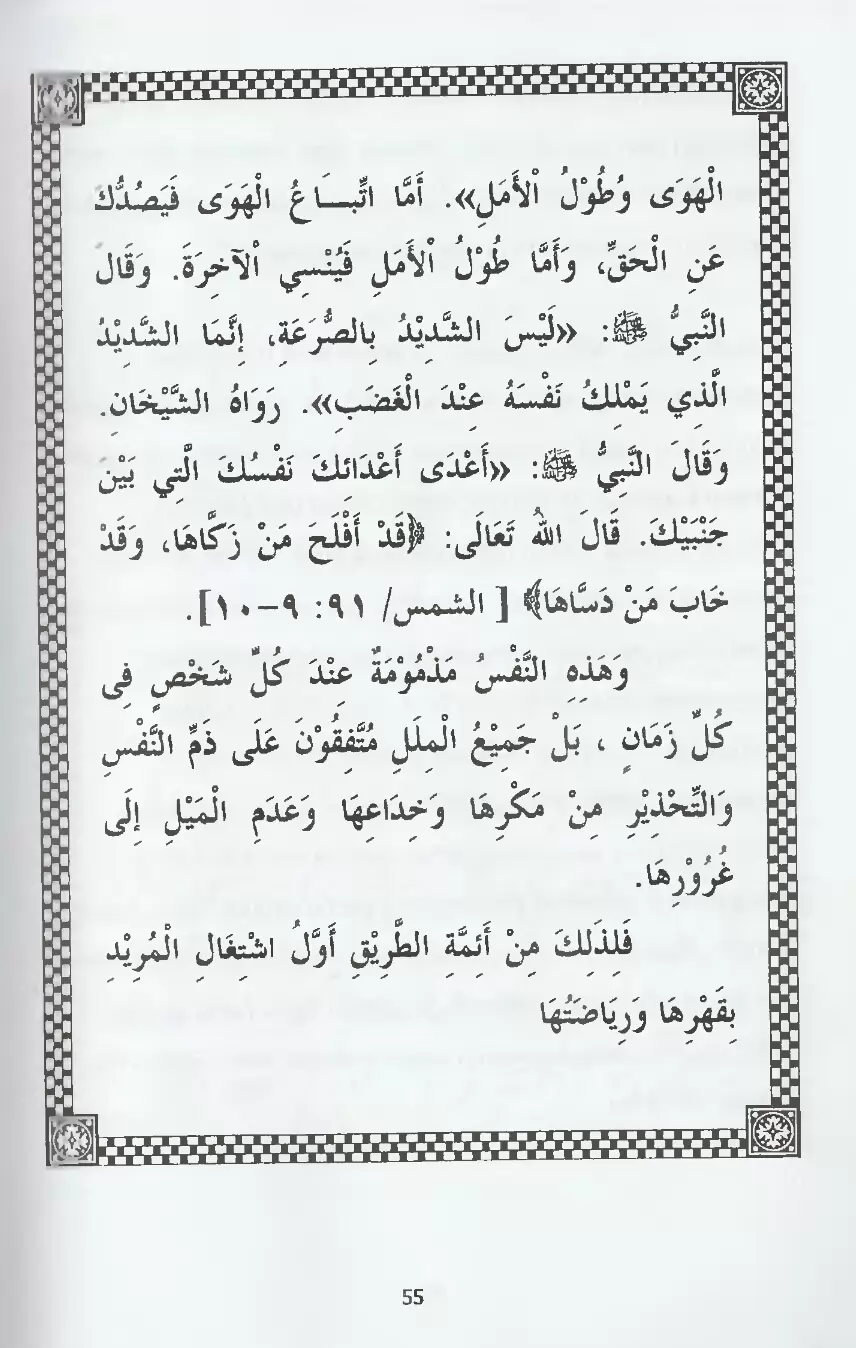 الْهَوَى وُطُوْلُ اْلأَمَلِ». أَمَّا اتِّبَــاعُ الْهَوَى فَيَصُدُّكَ
عَنِ الْحَقِّ، وَأَمَّا طُوْلُ اْلأَمَلِ فَيُنْسِي اْلآخِرَةَ. وَقَالَ
النَّبِيُّ ﷺ: «لَيْسَ الشَّدِيْدُ بِالصُّرَعَةِ، إِنَّمَا الشَّدِيْدُ
الَّذِي يَمْلِكُ نَفْسَهُ عِنْدَ الْغَضَبِ». رَوَاهُ الشَّيْخَانِ.
وَقَالَ النَّبِيُّ ﷺ: «أَعْدَى أَعْدَائِكَ نَفْسُكَ الَّتِي بَيْنَ
جَنْبَيْكَ. قَالَ اللهُ تَعَالَى: ﴿قَدْ أَفْلَحَ مَنْ زَكَّاهَا، وَقَدْ
خَابَ مَنْ دَسَّاهَا﴾ [ الشمس/ ٩١: ٩-١٠].
وَهَذِهِ النَّفْسُ مَذْمُوْمَةٌ عِنْدَ كُلِّ شَخْصٍ فِى
كُلِّ زَمَانٍ ، بَلْ جَمِيْعُ الْمِلَلِ مُتَّفِقُوْنَ عَلَى ذَمِّ النَّفْسِ
وَالتَّحْذِيْرِ مِنْ مَكْرِهَا وَخِدَاعِهَا وَعَدَمِ الْمَيْلِ إِلَى
غُرُوْرِهَا.
فَلِذَلِكَ مِنْ أَئِمَّةِ الطَّرِيْقِ أَوَّلُ اشْتِغَالِ الْمُرِيْدِ
بِقَهْرِهَا وَرِيَاضَتُهَا
55